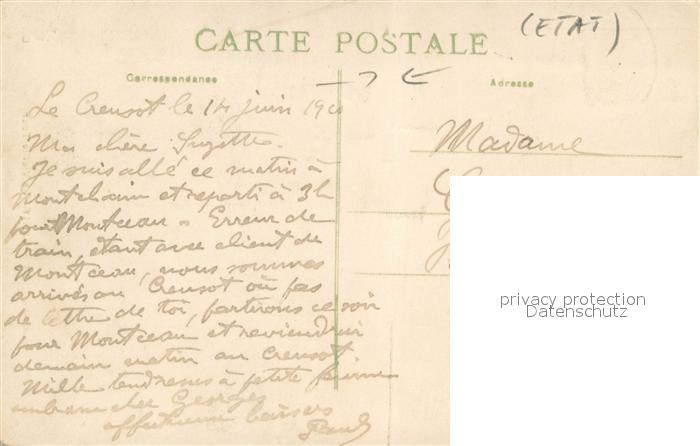 (ETAT)
CARTE POSTALE
Correspondance
Adresse
Le Creusot le 14 juin 19
Ma chère Suzette.
Je suis allé ce matin à
Montchanin et reparti à 3h
pour Montceau. Erreur de
train, étant avec client de
Montceau, nous sommes
arrivés au Creusot où pas
de lettre de toi, partirons ce soir
pour Montceau et reviendrai
demain matin au Creusot.
Mille tendresses à petite femme
embrasse cher Georges
affectueux baisers
Paul
Madame
privacy protection
Datenschutz